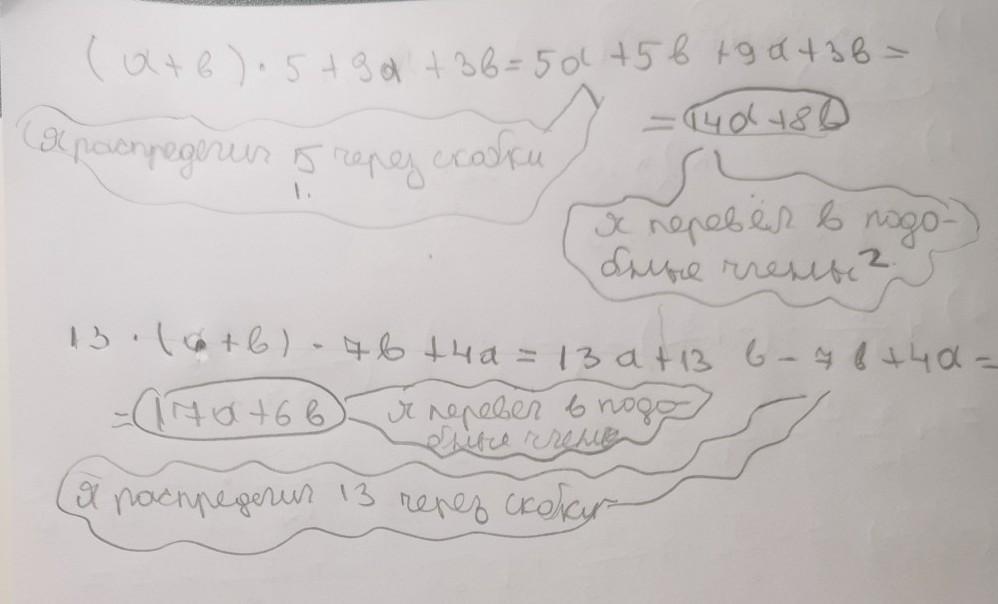 (a+b)·5+9a+3b=5a+5b+9a+3b=
=14a+8b
Я распределил 5 через скобки
1.
я перевёл в подо-
бные члены 2.
13·(a+b)-7b+4a=13a+13b-7b+4a=
=17a+6b я перевёл в подо-
бные члены
Я распределил 13 через скобку